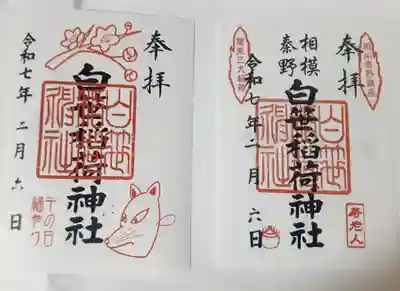 奉拝
白笹稲荷神社
令和七年 二月 六日
午の日
奉拝
相模
秦野
白笹稲荷神社
令和七年 二月 六日
関東三大稲荷
寿老人